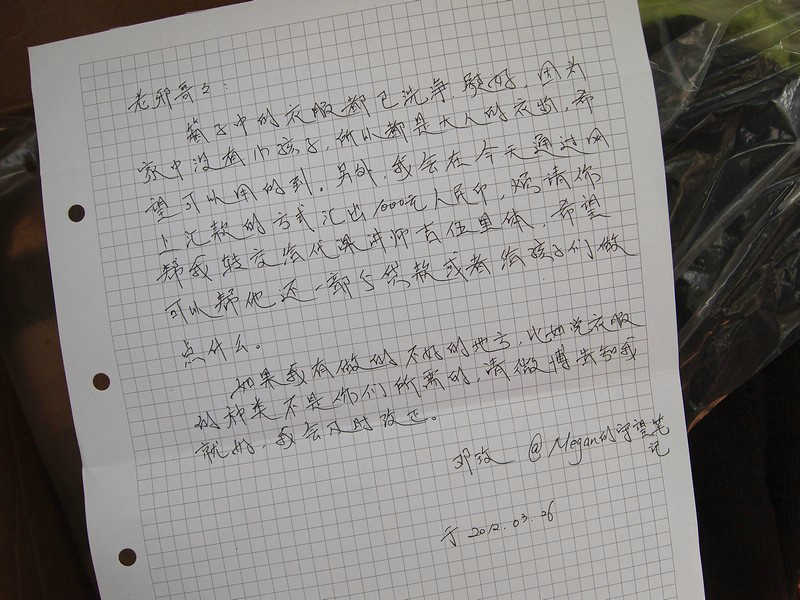 老邪哥:
箱子中的衣服都已洗净、叠好，因为
家中没有小孩子，所以都是大人的衣物，希
望可以用的到。另外，我会在今天通过网
上汇款的方式汇出1000元人民币，烦请你
帮我转交给代课讲师吉伍里体，希望
可以帮他还一部分贷款或者给孩子们做
点什么。
如果我有做的不好的地方，比如说衣服
的种类不是你们所需的，请微博告知我
就好，我会及时改正。
邓玫 @Megan的守望笔
记
于 2012.03.26